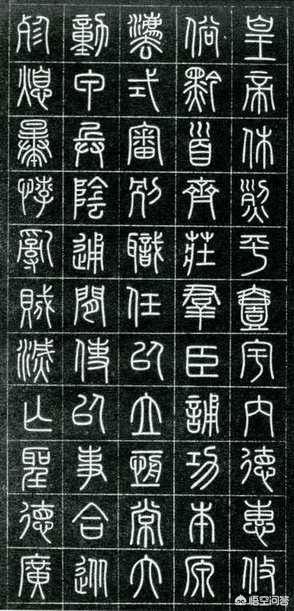 皇帝休烈平壹宇內德惠攸
俗黔首齊莊羣臣誦功本原
灋式審別職任以立恆常六
動甲兵陰通閒使以事合從
殄熄暴悖亂賊滅亡聖德廣
悟空问答